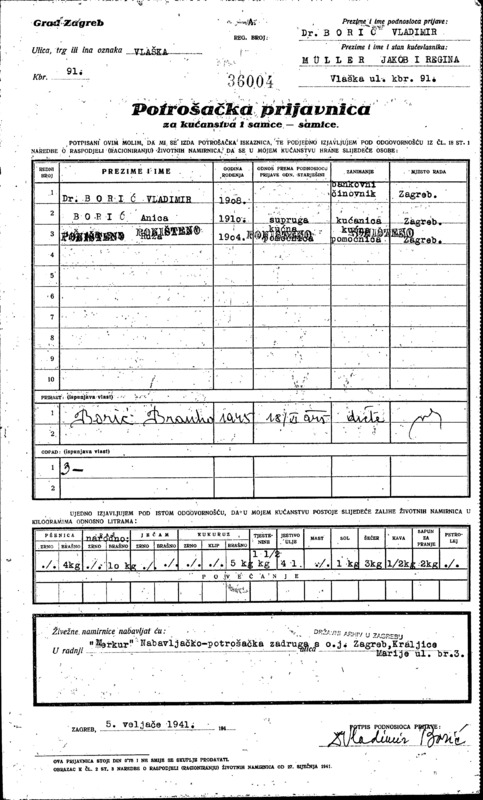 Grad Zagreb
Ulica, trg ili ina oznaka VLAŠKA
Kbr. 91.
REG. BROJ: A.
36004
Prezime i ime podnosioca prijave:
Dr. BORIĆ VLADIMIR
Prezime i ime i stan kućevlasnika:
MÜLLER JAKOB I REGINA
Vlaška ul. kbr. 91.
Potrošačka prijavnica
za kućanstva i samce — samice.
POTPISANI OVIM MOLIM, DA MI SE IZDA POTROŠAČKA ISKAZNICA, TE PODJEDNO IZJAVLJUJEM POD ODGOVORNOŠĆU IZ ČL. 15 ST. 1
NAREDBE O RASPODJELI (RACIONIRANJU) ŽIVOTNIH NAMIRNICA, DA SE U MOJEM KUĆANSTVU HRANE SLIJEDEĆE OSOBE:
REDNI BROJ PREZIME I IME GODINA ROĐENJA ODNOS PREMA PODNOSIOCU PRIJAVE ODN. STARJEŠINI ZANIMANJE MJESTO RADA
1 Dr. BORIĆ VLADIMIR 1908. bankovni činovnik Zagreb.
2 BORIĆ Anica 1910. supruga kućanica Zagreb.
3 PONIŠTENO PONIŠTENO Ruža 1904. PONIŠTENO kućna pomoćnica kućna pomoćnica PONIŠTENO Zagreb.
4
5
6
7
8
9
10
PRIRAST: (ispunjava vlast)
1 Borić Branko 1945 18/VI 945 dijete
2
OTPAD: (ispunjava vlast)
1 3—
2
UJEDNO IZJAVLJUJEM POD ISTOM ODGOVORNOŠĆU, DA U MOJEM KUĆANSTVU POSTOJE SLIJEDEĆE ZALIHE ŽIVOTNIH NAMIRNICA U
KILOGRAMIMA ODNOSNO LITRAMA:
PŠENICA narodno: JEČAM KUKURUZ TJESTENINE JESTIVO ULJE MAST SOL ŠEĆER KAVA SAPUN ZA PRANJE PETROLEJ
ZRNO BRAŠNO ZRNO BRAŠNO ZRNO BRAŠNO ZRNO KLIP BRAŠNO
./. 4kg ./. 10 kg ./. ./. ./. ./. 5 kg 1 1/2 kg 4 l. ./. 1 kg 3kg 1/2kg 2kg ./.
POVEĆANJE
Živežne namirnice nabavljat ću:
DRŽAVNI ARHIV U ZAGREBU
U radnji "Merkur" Nabavljačko-potrošačka zadruga s o.j. ulica Zagreb, Kraljice
Marije ul. br.3.
ZAGREB, 5. veljače 1941. 194
POTPIS PODNOSIOCA PRIJAVE:
Dr Vladimir Borić
OVA PRIJAVNICA STOJI DIN 0.75 I NE SMIJE SE SKUPLJE PRODAVATI.
OBRAZAC K ČL. 2 ST. 3 NAREDBE O RASPODJELI (RACIONIRANJU) ŽIVOTNIH NAMIRNICA OD 27. SIJEČNJA 1941.